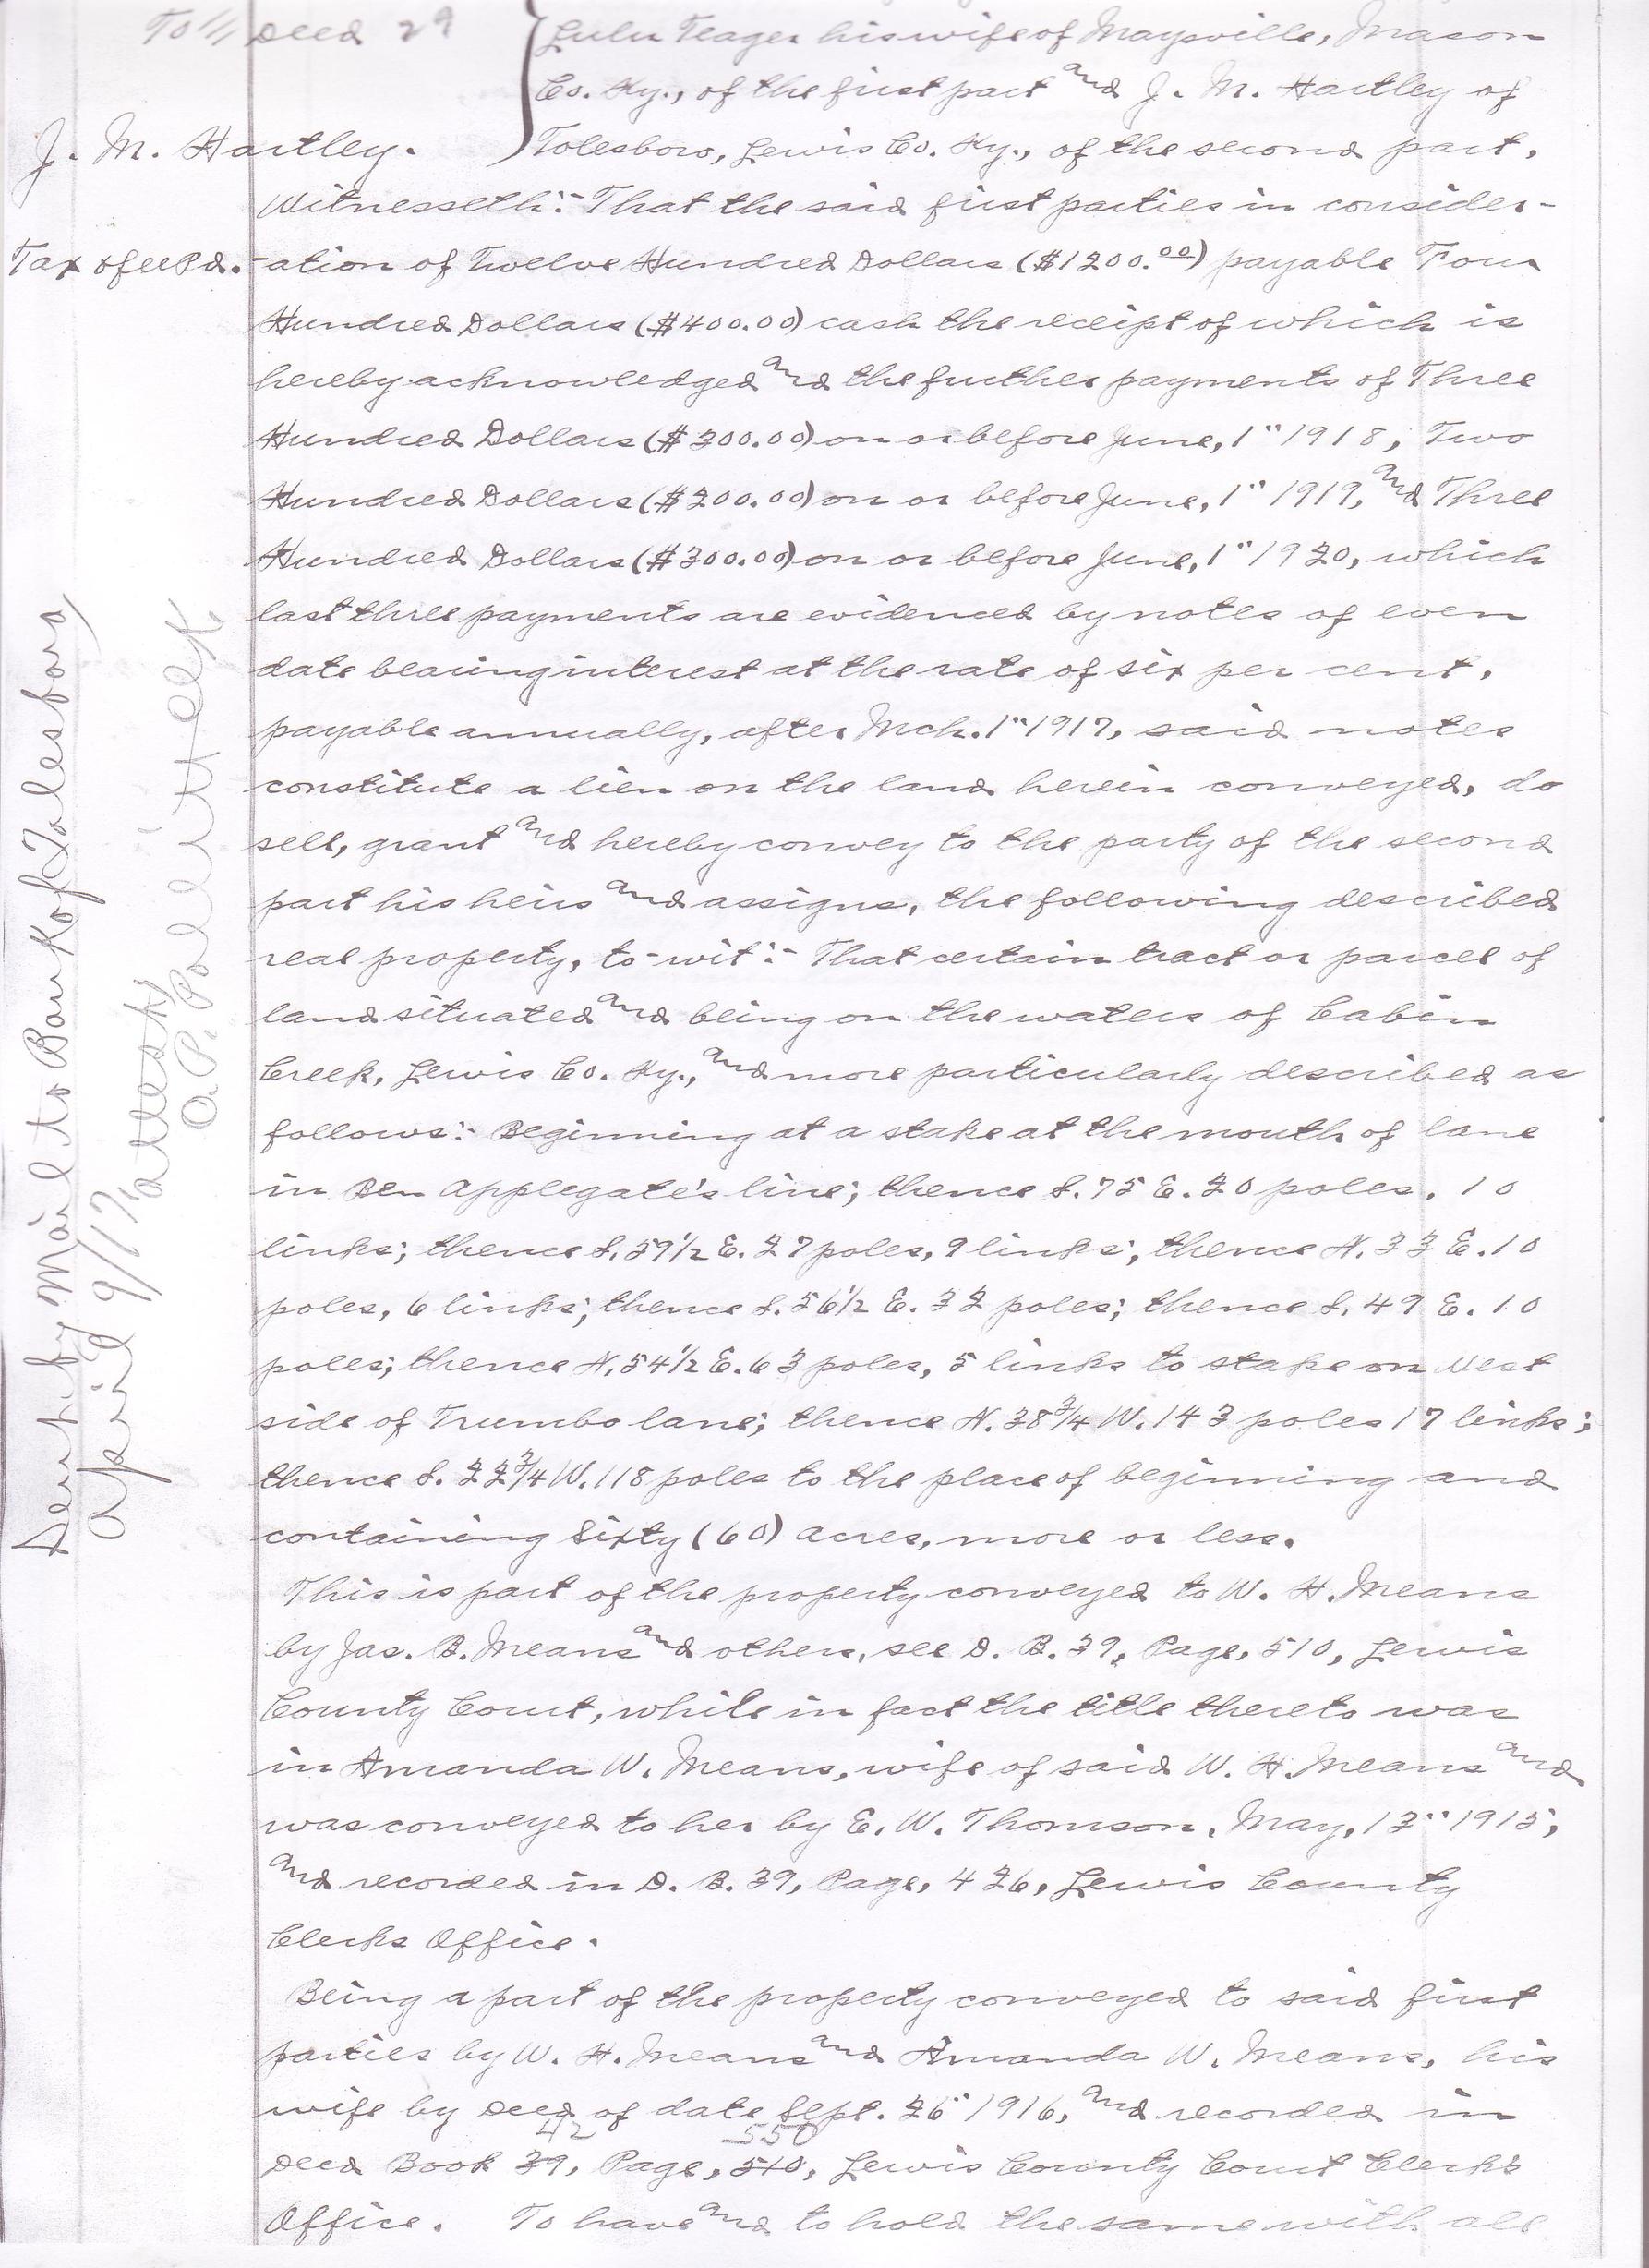 To // Deed 29
Lulu Teager his wife of Maysville, Mason
Co. Ky., of the first part and J. M. Hartley of
J. M. Hartley.
Tolesboro, Lewis Co. Ky., of the second part,
Witnesseth:- That the said first parties in consider-
Tax & fee Pd.
-ation of Twelve Hundred Dollars ($1200.00) payable Four
Hundred Dollars ($400.00) cash the receipt of which is
hereby acknowledged and the further payments of Three
Hundred Dollars ($300.00) on or before June, 1" 1918, Two
Hundred Dollars ($200.00) on or before June, 1" 1919, and Three
Hundred Dollars ($300.00) on or before June, 1" 1920, which
last three payments are evidenced by notes of even
date bearing interest at the rate of six per cent,
payable annually, after Mch. 1" 1917, said notes
constitute a lien on the land herein conveyed, do
sell, grant and hereby convey to the party of the second
part his heirs and assigns, the following described
real property, to-wit:- That certain tract or parcel of
land situated and being on the waters of Cabin
Creek, Lewis Co. Ky., and more particularly described as
follows:- Beginning at a stake at the mouth of lane
in Ben Applegate's line; thence S. 75 E. 20 poles, 10
links; thence S. 59 1/2 E. 27 poles, 9 links; thence N. 33 E. 10
poles, 6 links; thence S. 56 1/2 E. 32 poles; thence S. 49 E. 10
poles; thence N. 54 1/2 E. 63 poles, 5 links to stake on West
side of Trumbo lane; thence N. 38 3/4 W. 143 poles 17 links;
thence S. 22 3/4 W. 118 poles to the place of beginning and
containing Sixty (60) acres, more or less.
This is part of the property conveyed to W. H. Means
by Jas. B. Means and others, see D. B. 39, Page, 510, Lewis
County Court, while in fact the title thereto was
in Amanda W. Means, wife of said W. H. Means and
was conveyed to her by E. W. Thomson, May, 13" 1915,
and recorded in D. B. 39, Page, 426, Lewis County
Clerks Office.
Being a part of the property conveyed to said first
parties by W. H. Means and Amanda W. Means, his
wife by Deed of date Sept. 26" 1916, and recorded in
42 550
Deed Book 39, Page, 510, Lewis County Court Clerk's
Office. To have and to hold the same with all
Sent by Mail to Bank of Tolesboro,
April 9/17. attest,
O. P. Pollitt Clk,